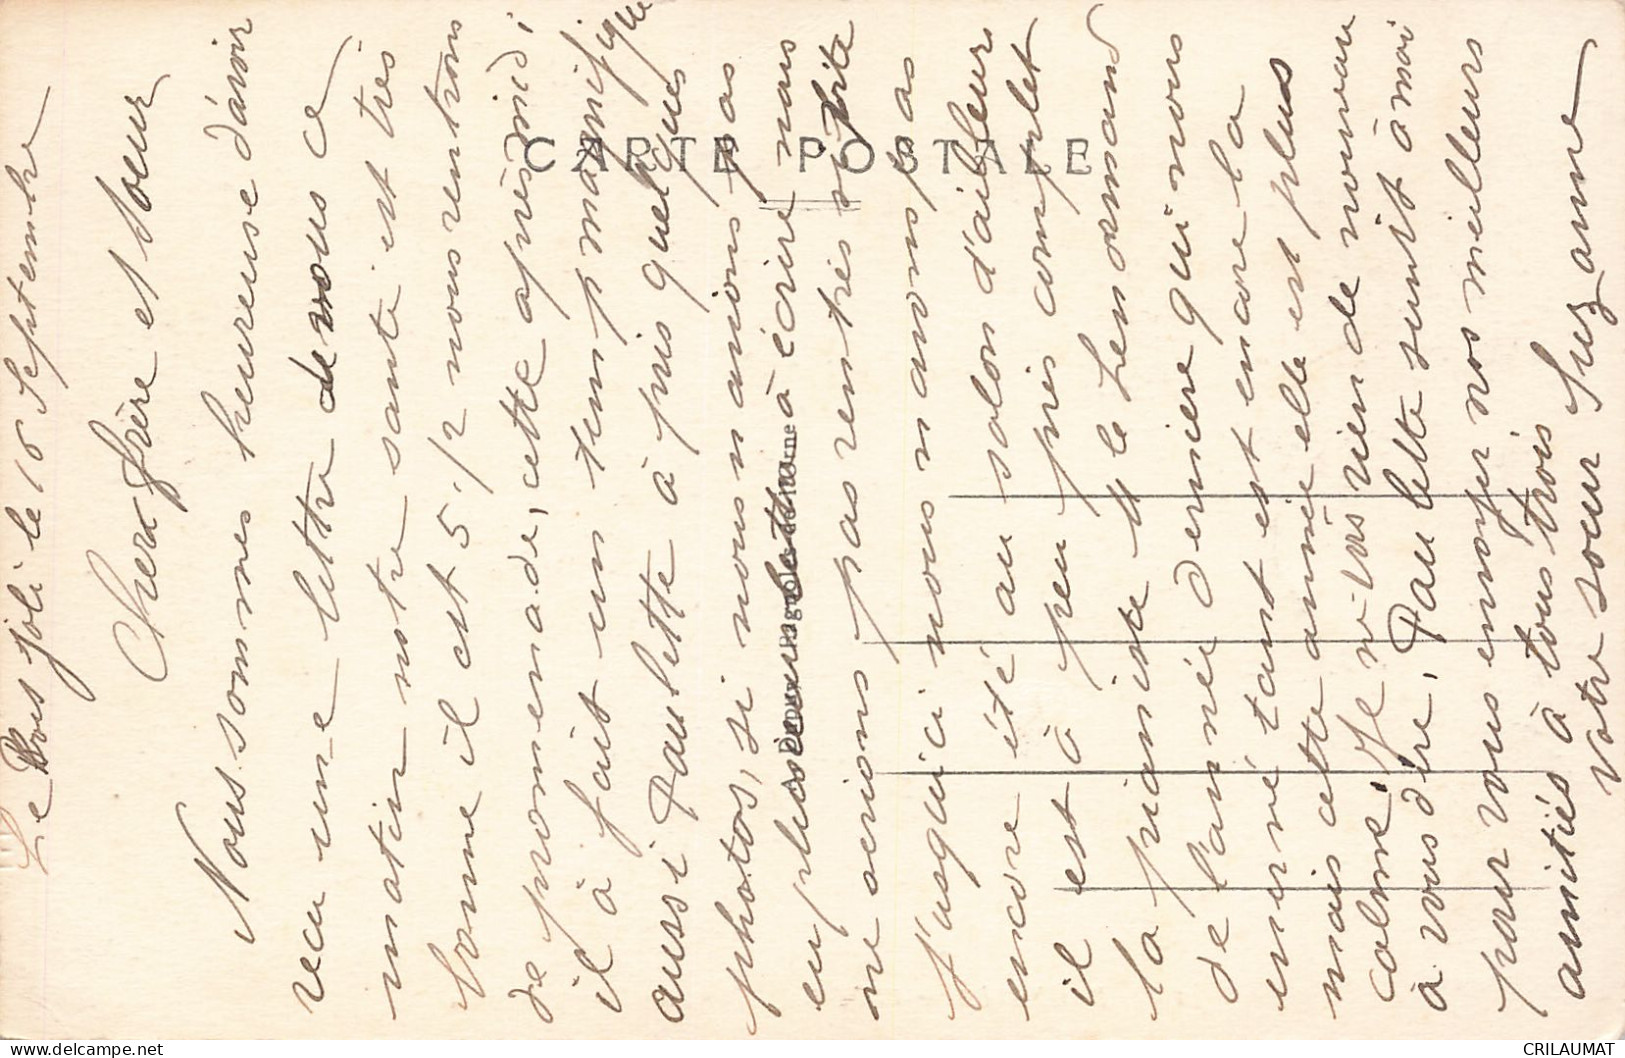 Le Bois joli le 16 Septembre
Chers frère et Soeur
Nous sommes heureuse d'avoir
recu une lettre de vous ce
matin notre santé est très
bonne il est 5.½ nous rentrons
de promenade, cette après midi
il à fait un temp magnifique
aussi Paulette à pris quelques
photos, si nous n'avions pas
eu plusieurs lettres à écrire nous
ne serions pas rentrés si vite
J'usqu'ici nous n'avons pas
encore été au salon d'ailleurs
il est à peu près complet
la pianiste Mlle Lenormand
de l'année dernière qui nous
énervé tant est encore la
mais cette année elle est plus
calme, Je ne vois rien de nouveau
à vous dire, Paulette s'unit à moi
pour vous envoyer nos meilleurs
amitiés à tous trois
Votre soeur Suzanne
CARTE POSTALE
CRILAUMAT